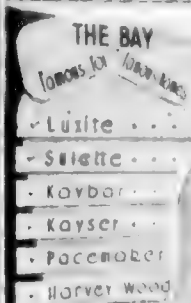 THE BAY
Famous for
• Luxite • • •
• Silette • • •
• Kaybar • • •
• Kayser • • •
• Pacemaker
• Harvey Wood